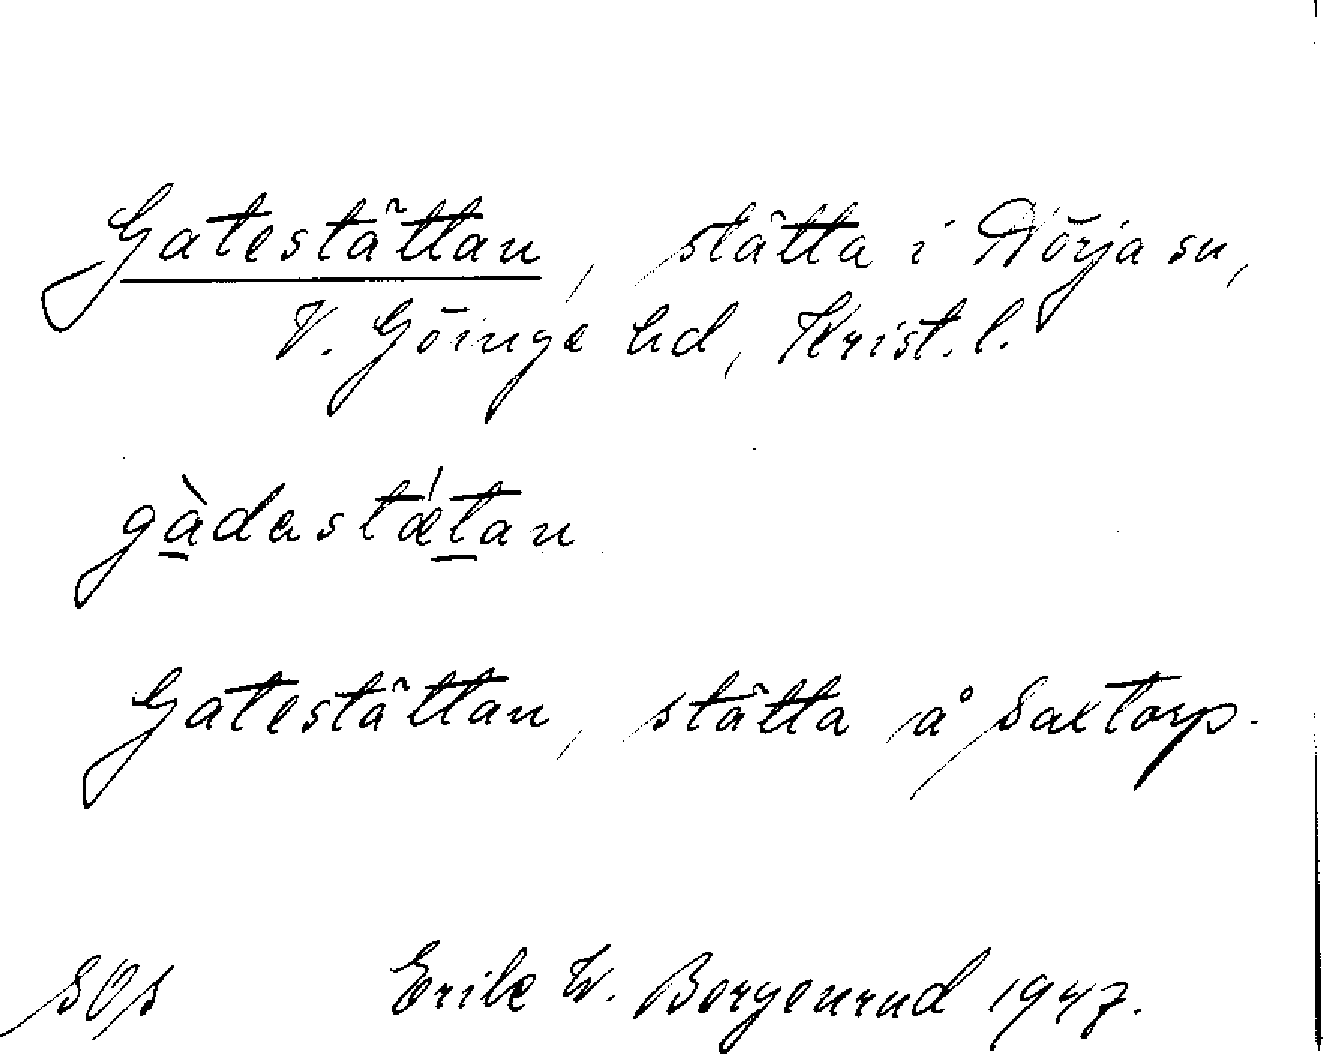 Gatestättan, stätta i Nörja sn,
V. Göinge hd, Krist. l.
gàdastǽtan
Gatestättan, stätta å Saxtorp.
Erik W. Bergenrud 1947.